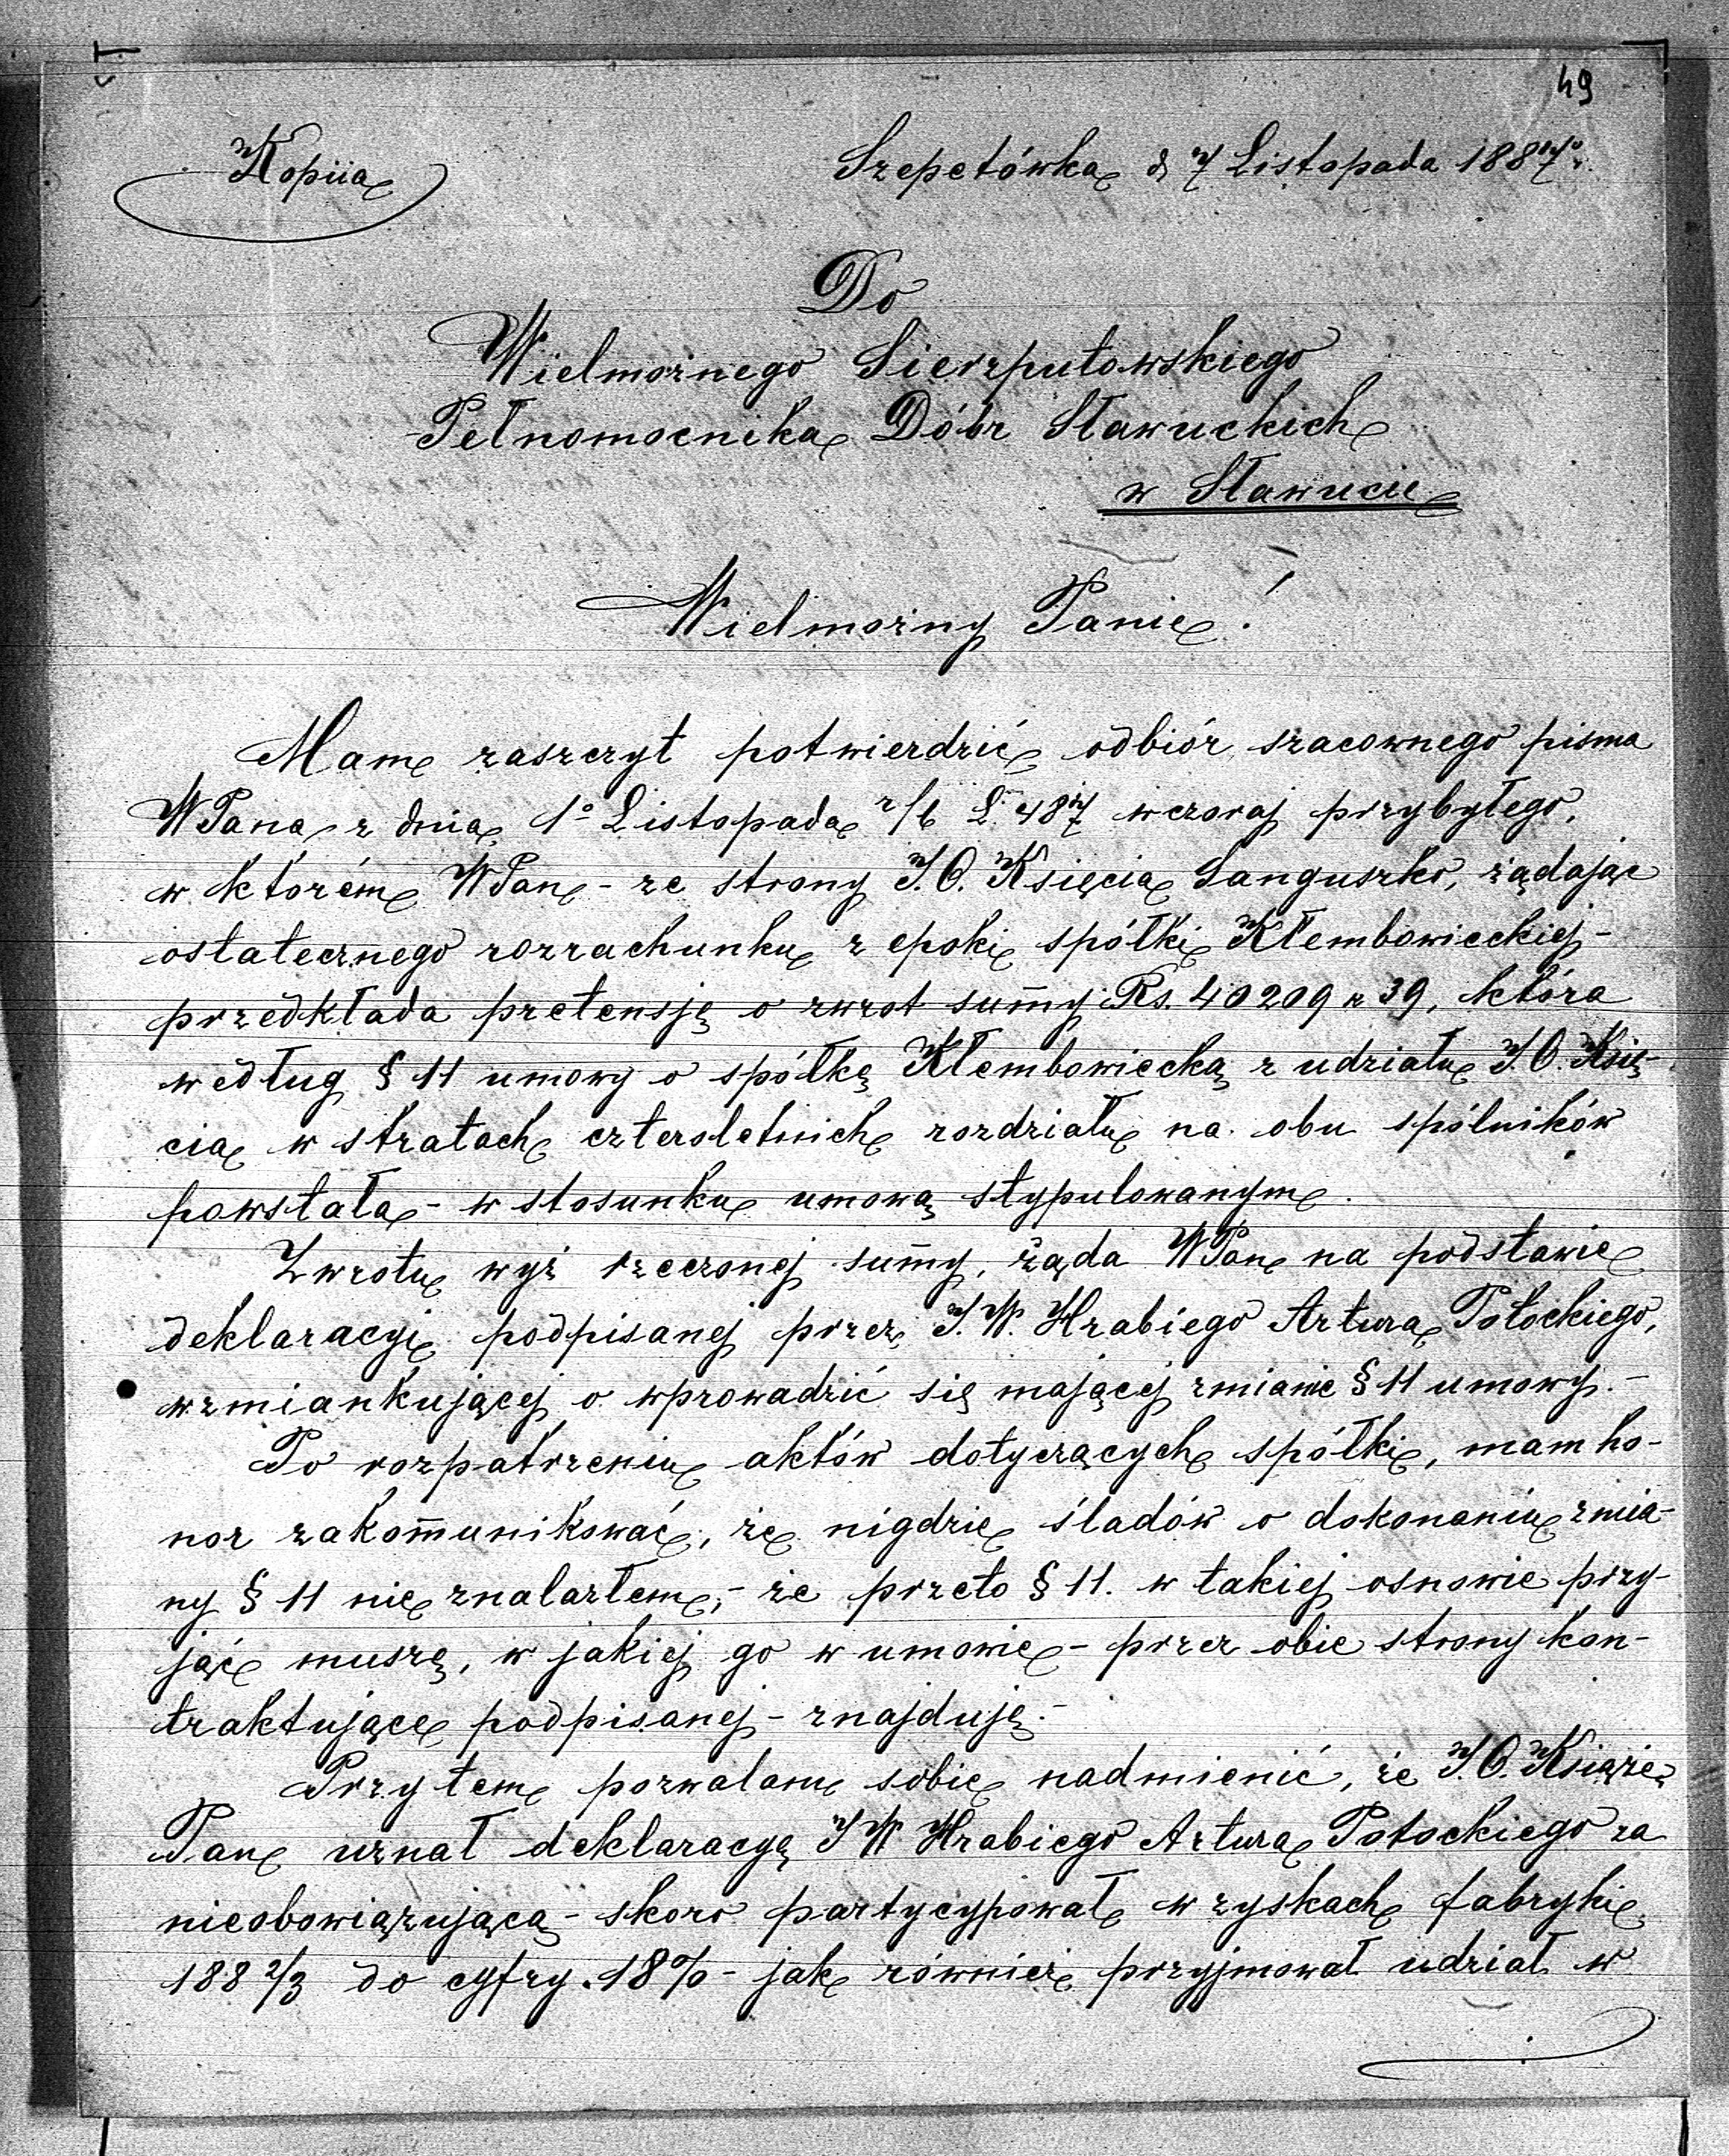 49
Kopiia
Szepetówka d 7 Listopada 1887 r.
Do
Wielmożnego Sierzputowskiego
Pełnomocnika Dóbr Sławuckich
w Sławucie
Wielmożny Panie!
Mam zaszczyt potwierdzić odbiór szacownego pisma
WPana z dnia 1º Listopada r/b L. 487 wczoraj przybyłego,
w którém WPan - ze strony J.O. Księcia Sanguszko, żądając
ostatecznego rozrachunku z epoki spółki Kłembowieckiej -
przedkłada pretensję o zwrot sum̄y Rs. 40209 k 39, która
według § 11 umowy o spółkę Kłembowiecką z udziału J.O. Księ-
cia w stratach czteroletnich rozdziału na obu spólników
powstała - w stosunku umową stypulowanym.
Zwrotu wyż rzeczonej sum̄y, żąda WPan na podstawie
deklaracyi podpisanej przez J.W. Hrabiego Artura Potockiego,
wzmiankującej o wprowadzić się mającej zmianie § 11 umowy. -
Po rozpatrzeniu aktów dotyczących spółki, mam ho-
nor zakom̄unikować, że nigdzie śladów o dokonaniu zmia-
ny § 11 nie znalazłem, - że przeto § 11. w takiej osnowie przy-
jąć muszę, w jakiej go w umowie - przez obie strony kon-
traktujące podpisanej - znajduję. -
Przytem pozwalam sobie nadmienić, że J.O. Książe
Pan uznał deklaracyę JW Hrabiego Artura Potockiego za
nieobowiązującą - skoro partycypował w zyskach fabryki
188 2/3 do cyfry 18% - jak również przyjmował udział w